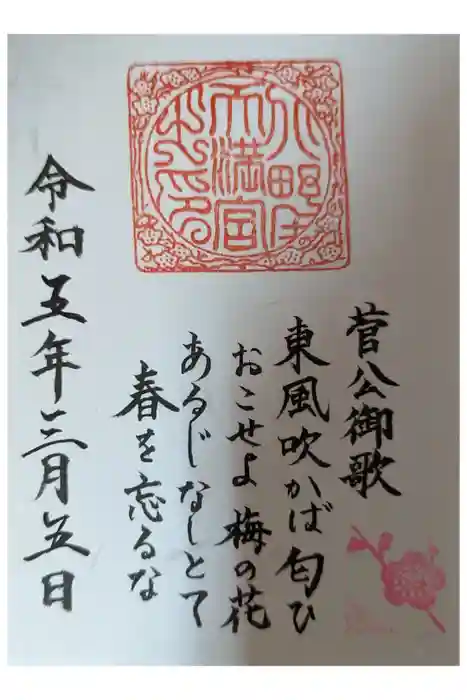 天満宮
之印
菅公御歌
東風吹かば匂ひ
おこせよ梅の花
あるじなしとて
春を忘るな
令和五年三月五日